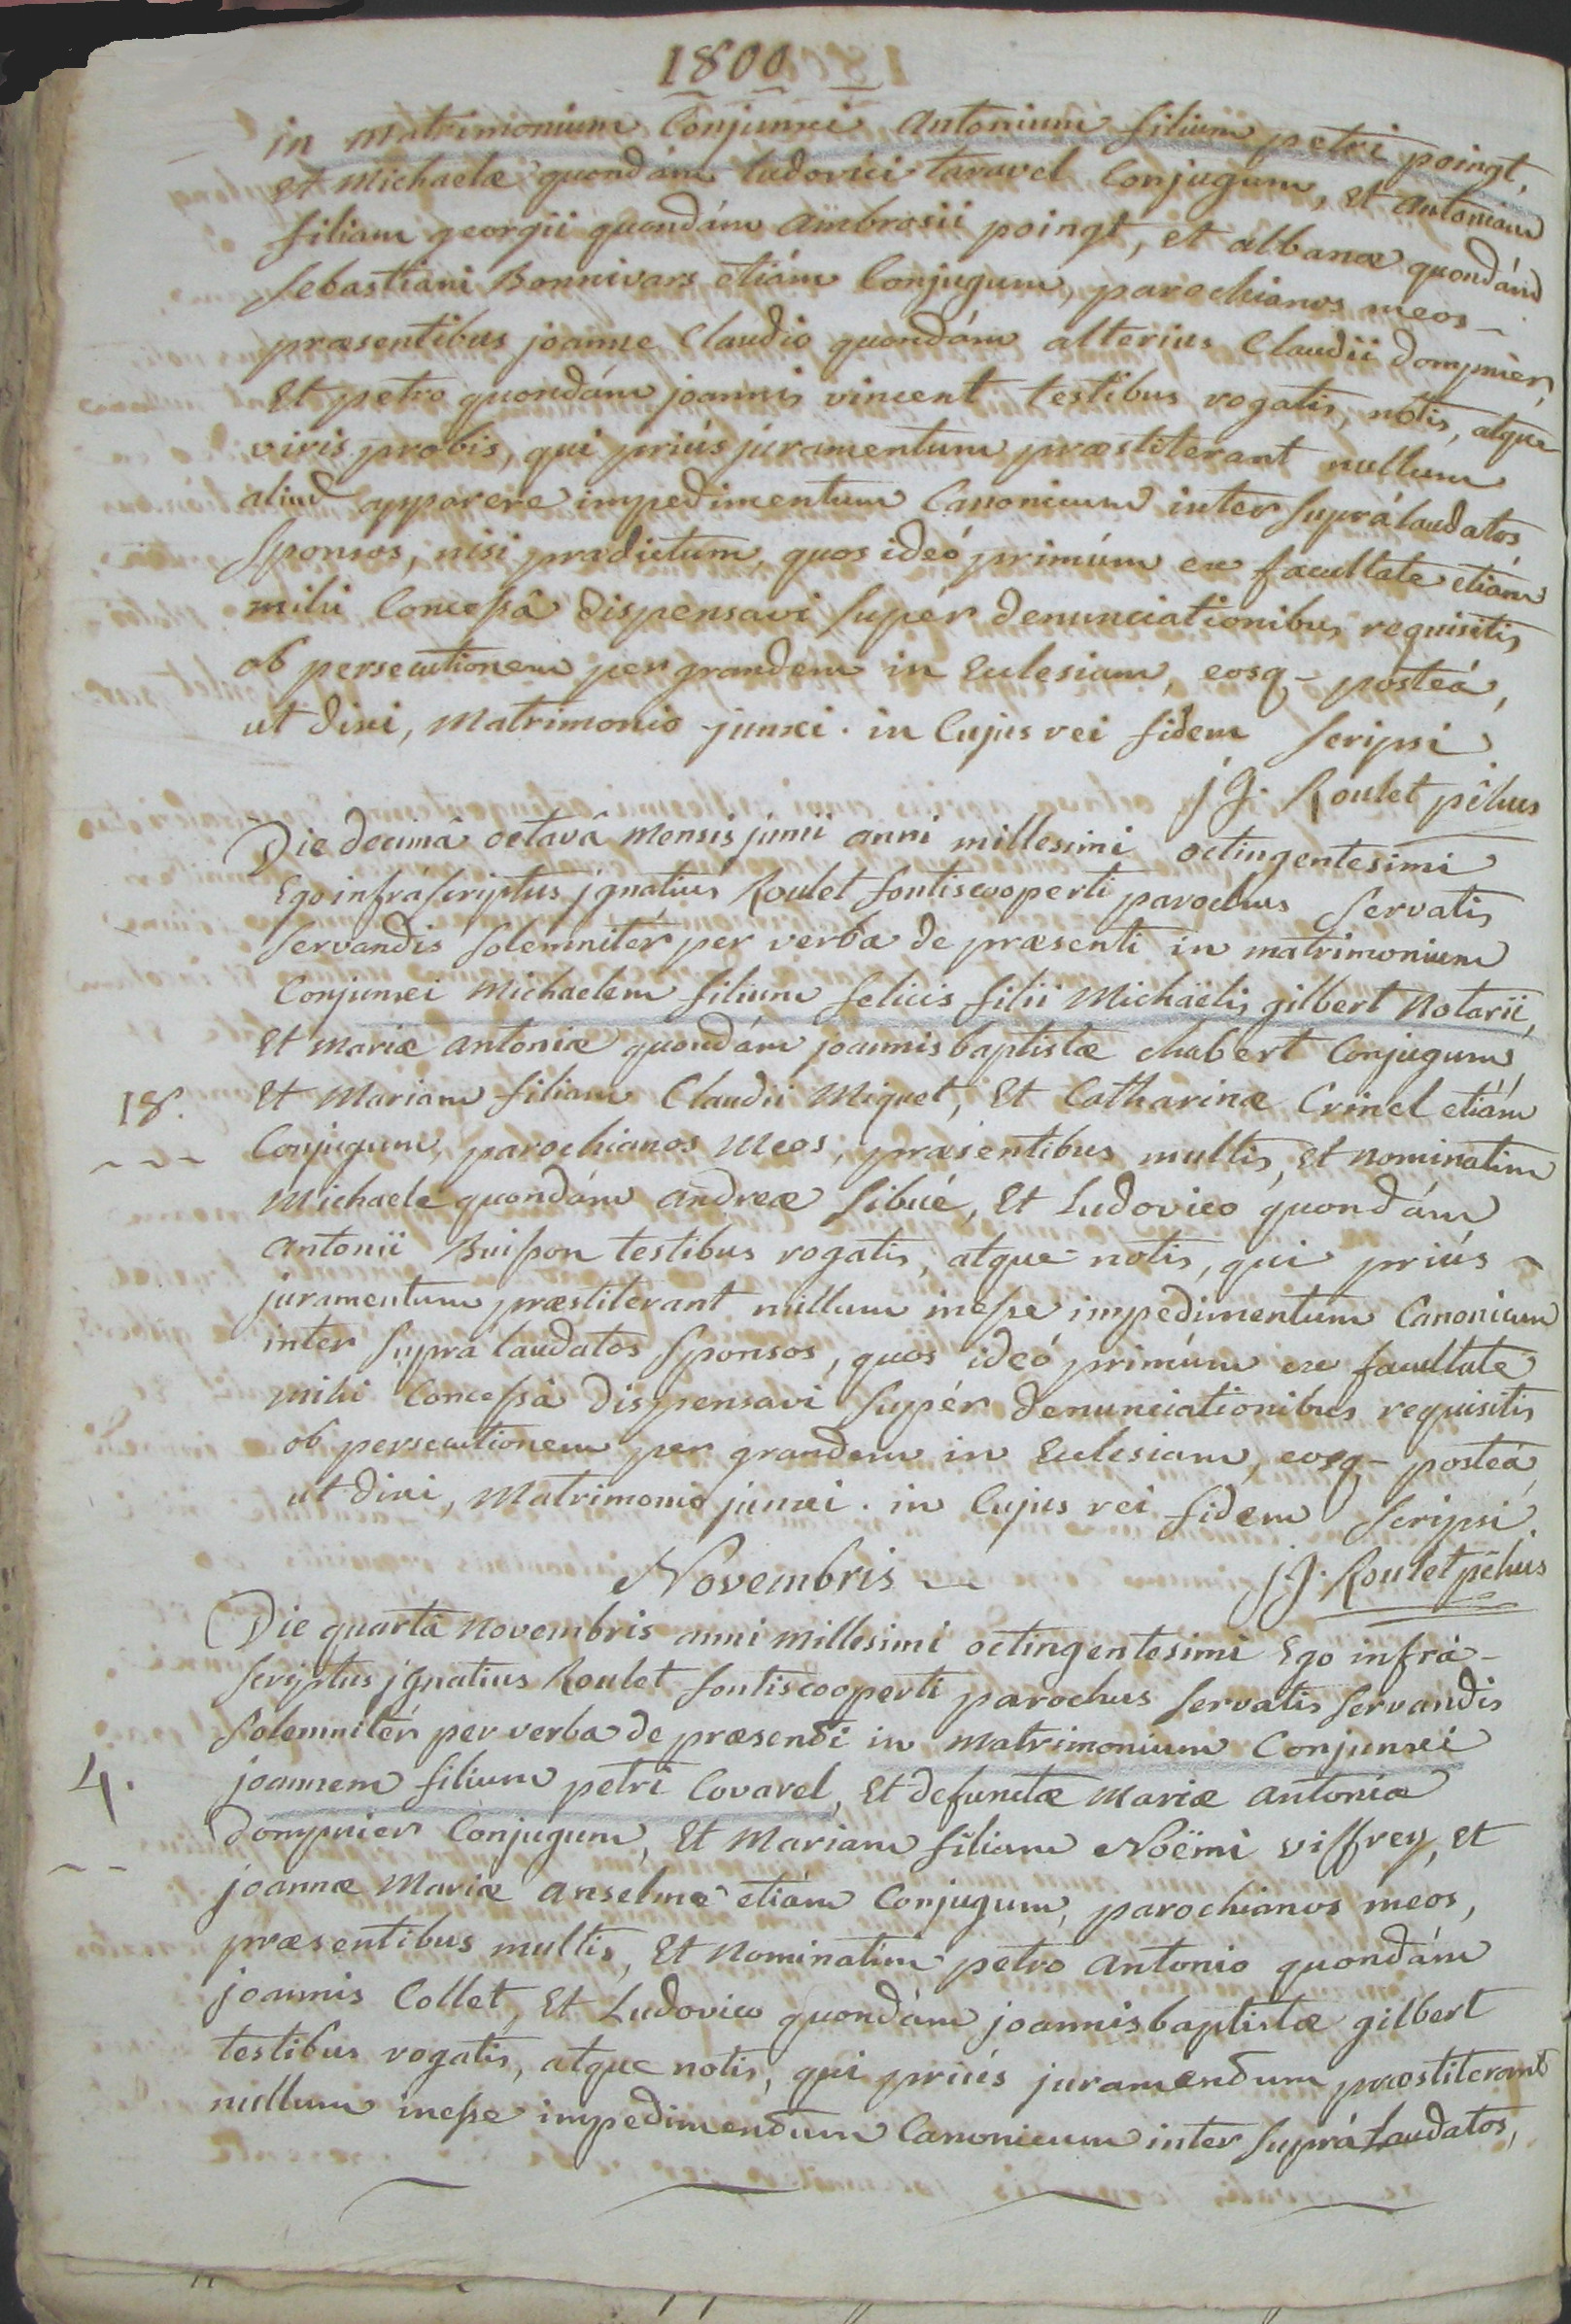 1800
in Matrimonium Conjunxi Antonium filium petri poingt,
et Michaelæ quondám ludovici taravel Conjugum, et Antoniam
filiam georgii quondám Ambrosii poingt, et albanæ quondám
Sebastiani Bonnivars etiám Conjugum, parochianos meos –
præsentibus joanne Claudio quondám alterius Claudii dompnier,
Et petro quondám joannis vincent testibus rogatis, notis, atque
viris probis, qui priús juramentum præstiterant nullum
aliud apparere impedimentum Canonicum inter supráláudatos
sponsos, nisi prædictum, quos ideó primúm ex facultate etiám
mihi Concessâ dispensavi supér denunciationibus requisitis
ob persecutionem per grandem in Ecclesiam, eosq- posteá,
ut dixi, Matrimonio junxi. in Cujus rei fidem Scripsi.
j J. Roulet p̃chus
Die decimâ octavâ Mensis junii anni millesimi octingentesimi
Ego infráscriptus jgnatius Roulet fontiscooperti parochus servatis
servandis solemnitér per verba de præsenti in matrimonium
Conjunxi Michaelem filium felicis filii Michäelis gilbert Notarii,
Et Mariæ Antoniæ quondám joannisbaptistæ chabert Conjugum,
18. Et Mariam filiam Claudii Miquet, Et Catharinæ Crinel etiám
Conjugum, parochianos Meos, præsentibus multis, Et Nominatim
Michaele quondám Andreæ Sibué, Et Ludovico quondám
Antonii Buisson testibus rogatis, atque notis, qui priús –
juramentum præstiterant nullum inesse impedimentum Canonicum
inter supra laudatos sponsos, quos ideó primúm ex facultate
mihi Concessâ dispensavi supér denunciationibus requisitis
ob persecutionem per grandem in Ecclesiam, eosq- posteá
ut dixi, Matrimonio junxi. in Cujus rei fidem Scripsi.
j J. Roulet p̃chus
Novembris
Die quartâ Novembris anni Millesimi octingentesimi Ego infrá-
scriptus jgnatius Roulet fontiscooperti parochus servatis servandis
solemnitér per verba de præsenti in Matrimonium Conjunxi
4. joannem filium petri Covarel, Et defunctæ Mariæ Antoniæ
dompnier Conjugum, Et Mariam filiam Noëmi viffrey, Et
joannæ Mariæ Anselme etiám Conjugum, parochianos meos,
præsentibus multis, Et Nominatim petro Antonio quondám
joannis Collet, Et Ludovico quondám joannisbaptistæ gilbert
testibus rogatis, atque notis, qui priús juramentum præstiterant
nullum inesse impedimentum Canonicum inter suprá Laudatos,